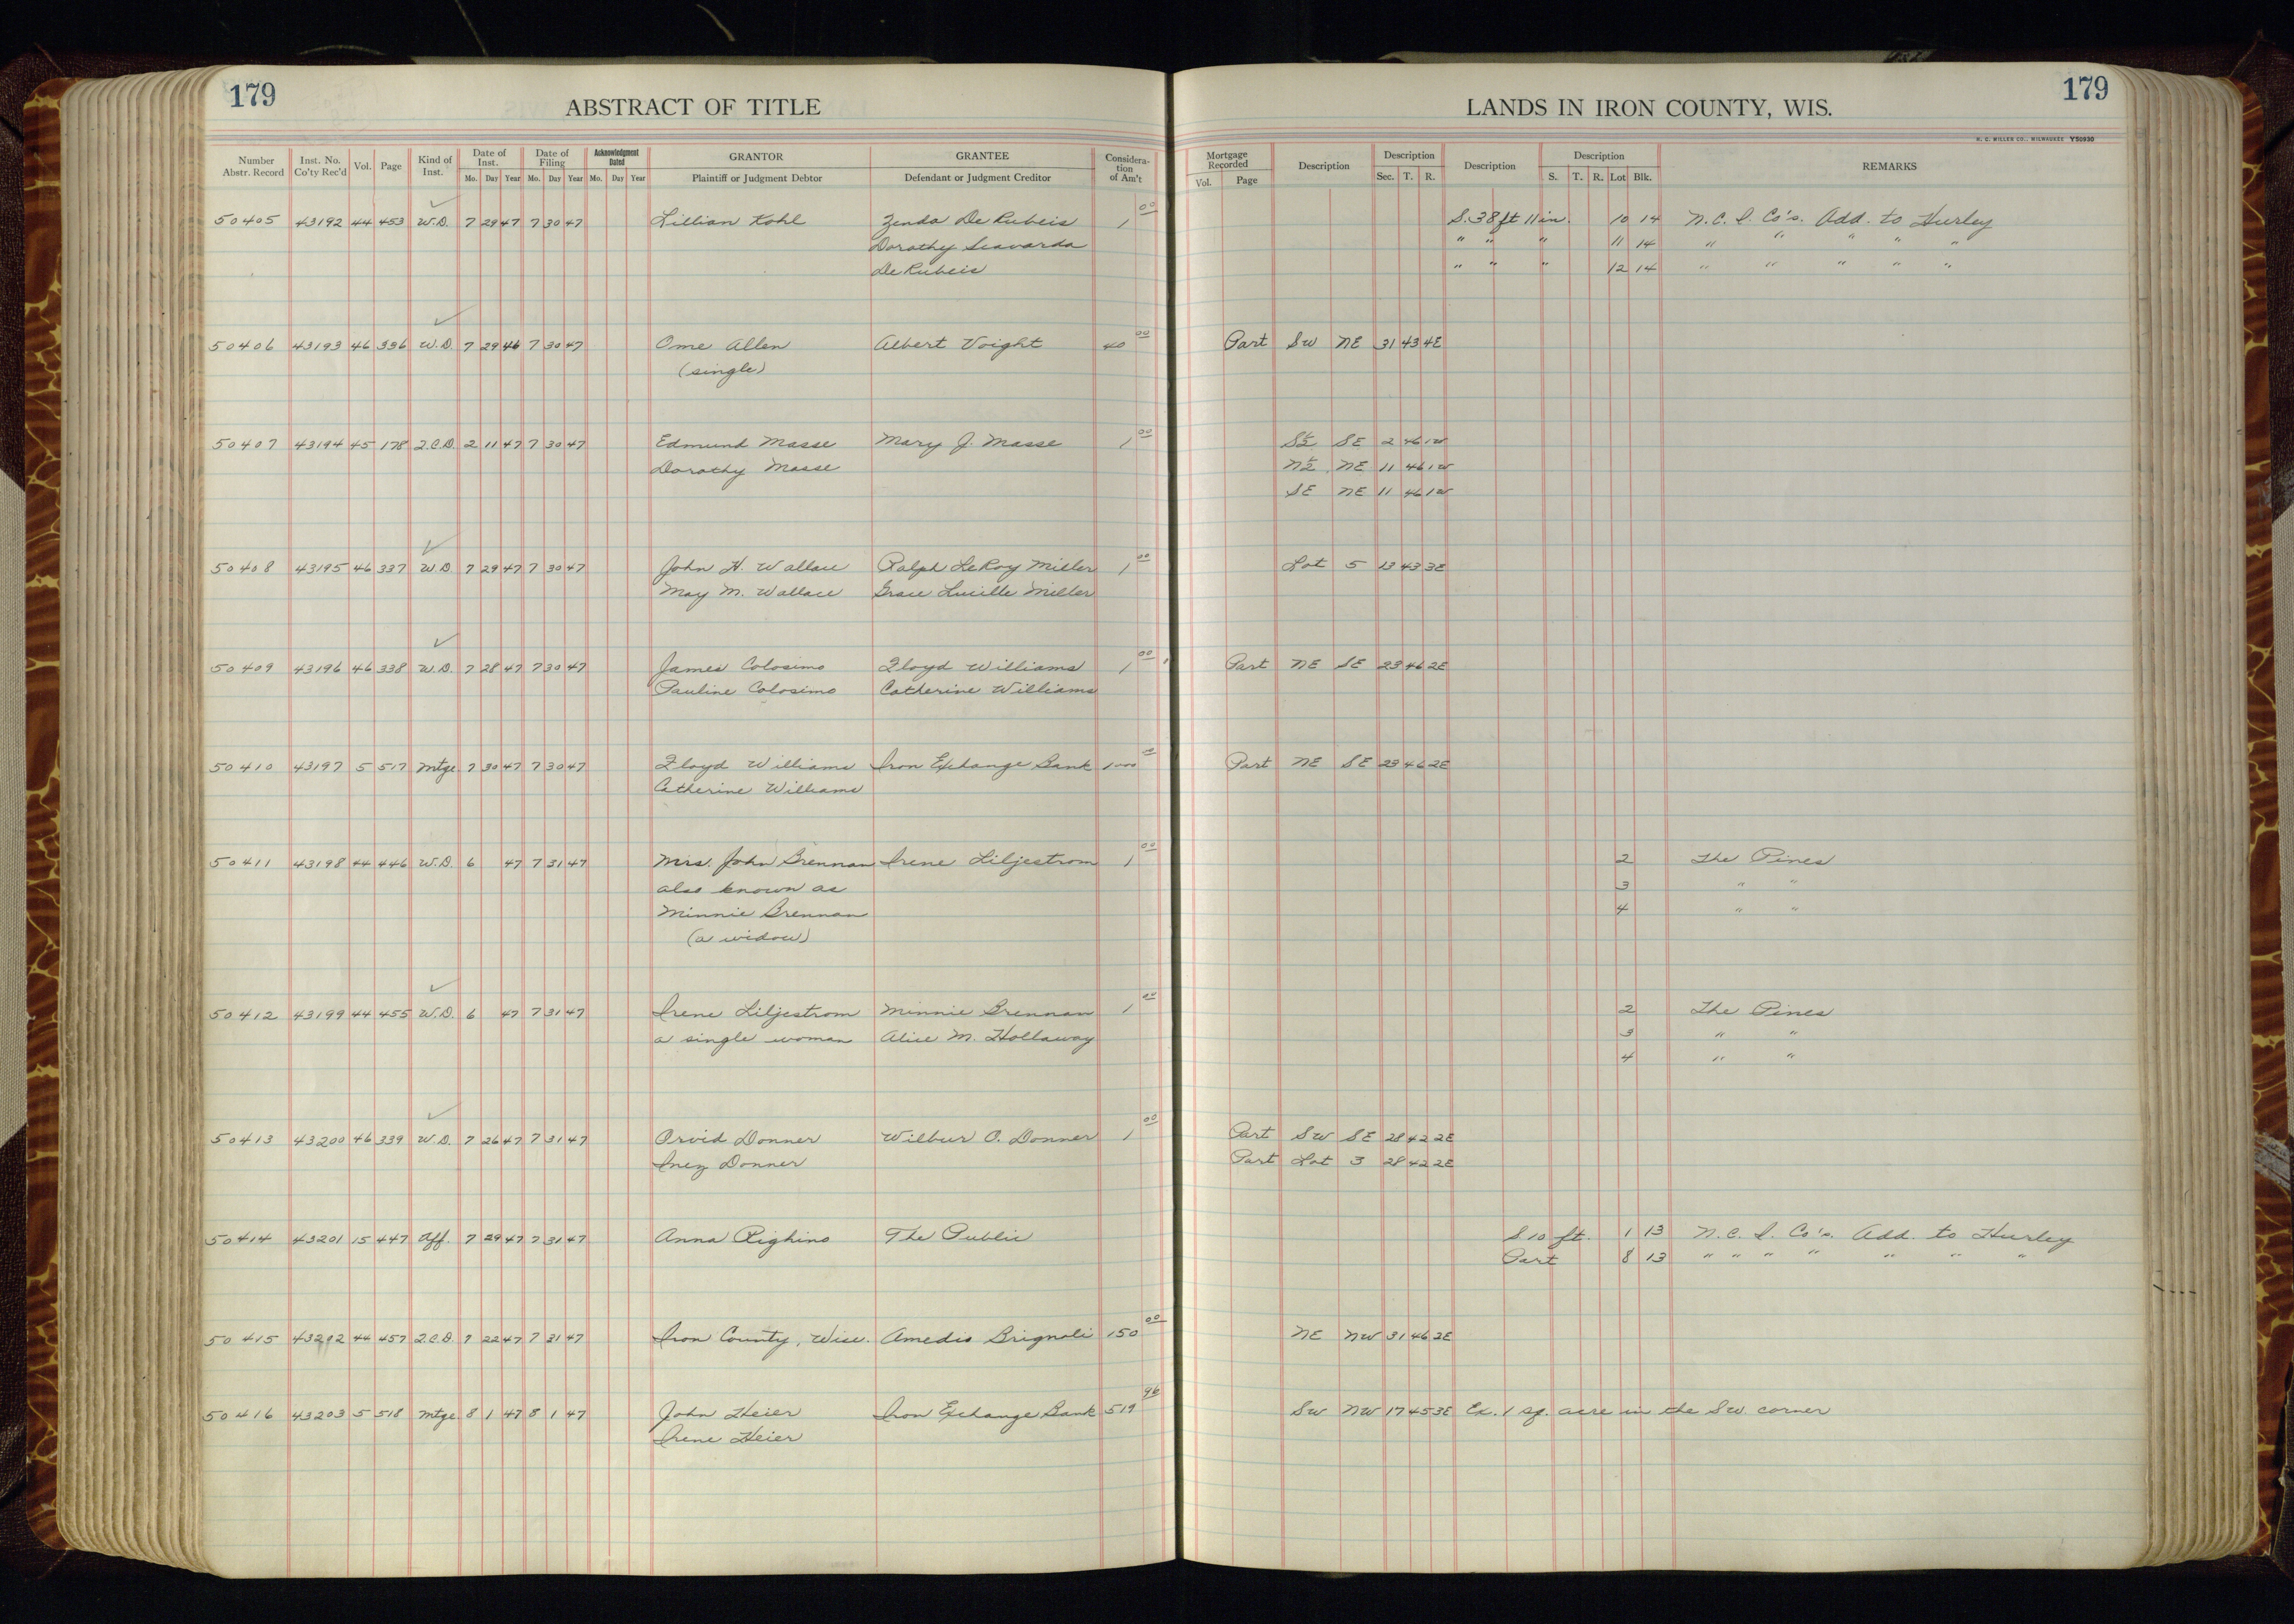 179
ABSTRACT OF TITLE
LANDS IN IRON COUNTY, WIS.
179
H. C. MILLER CO., MILWAUKEE Y50930
Number Abstr. Record Inst. No. Co'ty Rec'd Vol. Page Kind of Inst. Date of Inst. Mo. Day Year Date of Filing Mo. Day Year Acknowledgment Dated Mo. Day Year GRANTOR Plaintiff or Judgment Debtor GRANTEE Defendant or Judgment Creditor Considera-tion of Am't Mortgage Recorded Vol. Page Description Description Sec. T. R. Description Description S. T. R. Lot Blk. REMARKS
50405 43192 44 453 W.D. 7 29 47 7 30 47 Lillian Kohl Zenda De Rubeis 1 00 S. 38 ft 11 in. 10 14 N. C. I. Co's. Add. to Hurley
Dorothy Scavarda " " " 11 14 " " " " "
De Rubeis " " " 12 14 " " " " "
50406 43193 46 336 W.D. 7 29 46 7 30 47 Ome Allen Albert Voight 40 00 Part SW NE 31 43 4E
(single)
50407 43194 45 178 Q.C.D. 2 11 47 7 30 47 Edmund Masse Mary J. Masse 1 00 S½ SE 2 46 1W
Dorothy Masse N½ NE 11 46 1W
SE NE 11 46 1W
50408 43195 46 337 W.D 7 29 47 7 30 47 John H. Wallace Ralph LeRoy Miller 1 00 Lot 5 13 43 3E
May M. Wallace Grace Lucille Miller
50409 43196 46 338 W.D. 7 28 47 7 30 47 James Colosimo Floyd Williams 1 00 Part NE SE 23 46 2E
Pauline Colosimo Catherine Williams
50410 43197 5 517 Mtge 7 30 47 7 30 47 Floyd Williams Iron Exchange Bank 1000 00 Part NE SE 23 46 2E
Catherine Williams
50411 43198 44 446 W.D. 6 47 7 31 47 Mrs. John Brennan Irene Liljestrom 1 00 2 The Pines
also known as 3 " "
Minnie Brennan 4 " "
(a widow)
50412 43199 44 455 W.D. 6 47 7 31 47 Irene Liljestrom Minnie Brennan 1 00 2 The Pines
a single woman Alice M. Hollaway 3 " "
4 " "
50413 43200 46 339 W.D. 7 26 47 7 31 47 Orvid Donner Wilbur O. Donner 1 00 Part SW SE 28 42 2E
Inez Donner Part Lot 3 28 42 2E
50414 43201 15 447 Aff. 7 29 47 7 31 47 Anna Righino The Public S 10 ft. 1 13 N. C. I. Co's. Add. to Hurley
Part 8 13 " " " " " " "
50415 43202 44 457 Q.C.D. 7 22 47 7 31 47 Iron County, Wisc. Amedio Brignoli 150 00 NE NW 31 46 2E
50416 43203 5 518 Mtge 8 1 47 8 1 47 John Heier Iron Exchange Bank 519 96 SW NW 17 45 3E Ex. 1 sq. acre in the SW corner
Irene Heier